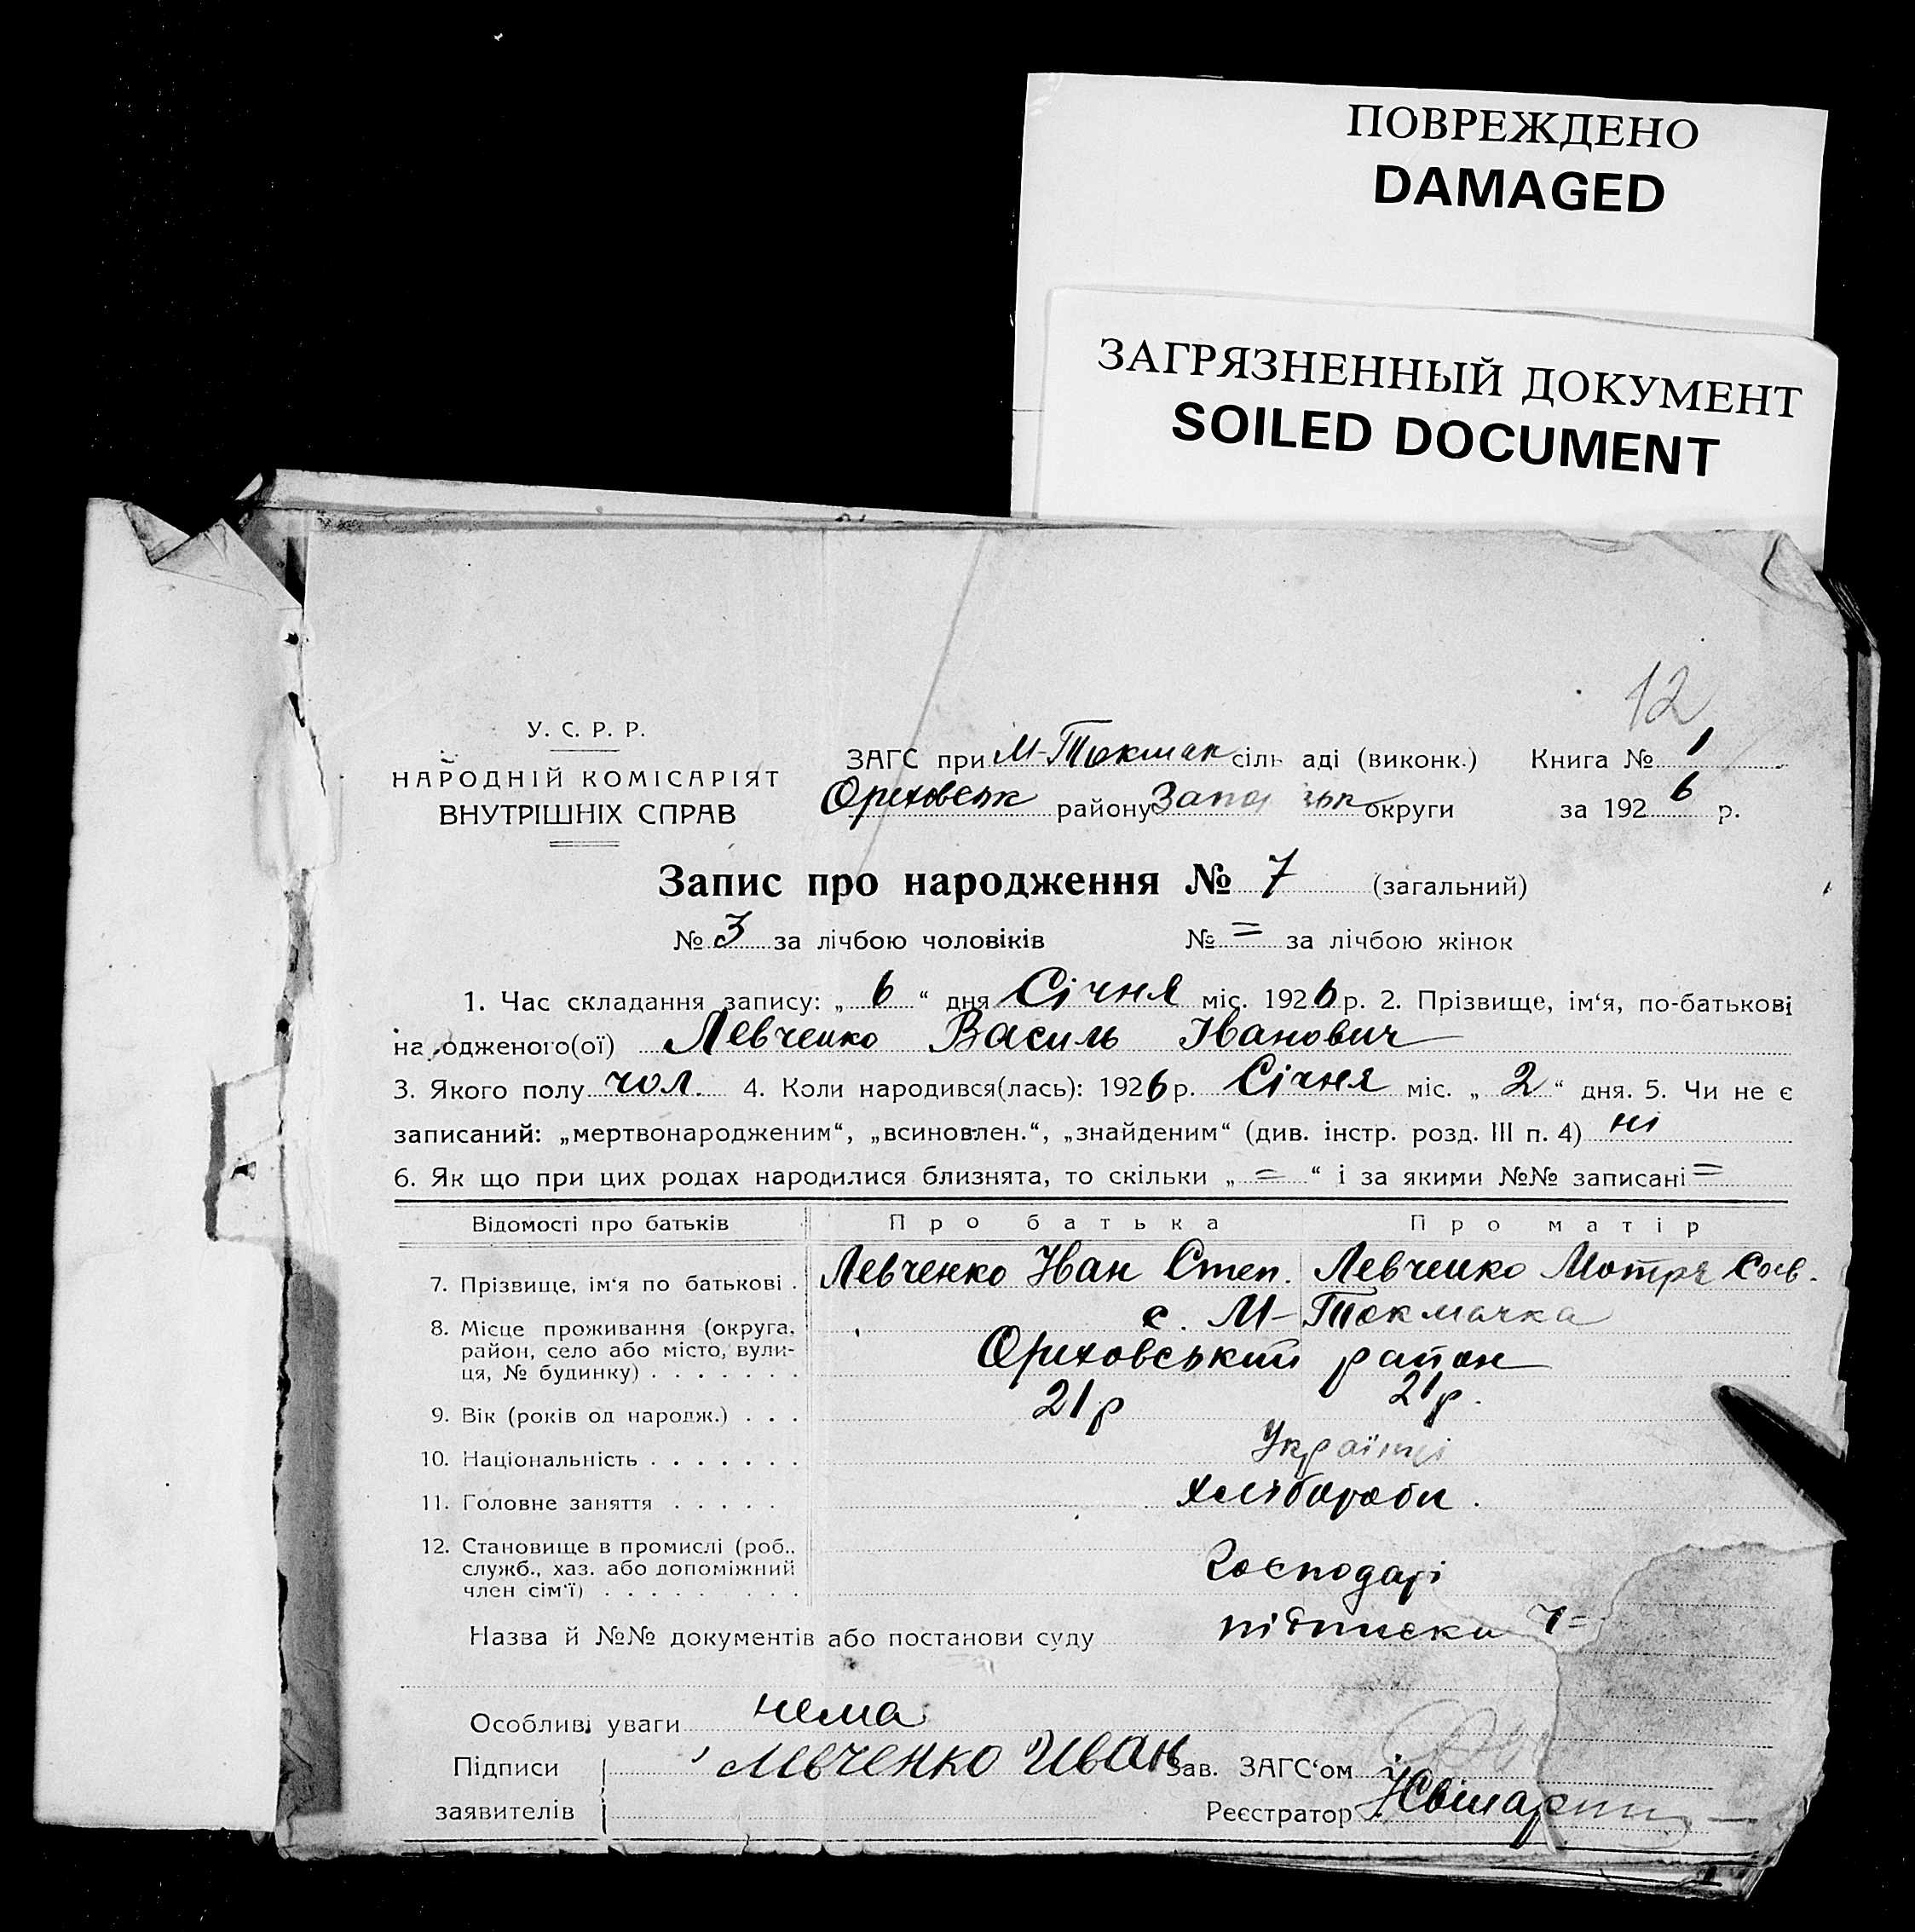 ПОВРЕЖДЕНО
DAMAGED
ЗАГРЯЗНЕННЫЙ ДОКУМЕНТ
SOILED DOCUMENT
12
У. С. Р. Р.
НАРОДНІЙ КОМІСАРІЯТ
ВНУТРІШНІХ СПРАВ
ЗАГС при М-Токмак сіль аді (виконк.) Книга № 1
Оріховськ району округи за 1926 р.
Запис про народження № 7 (загальний)
№ 3 за лічбою чоловіків № = за лічбою жінок
1. Час складання запису: „ 6 “ дня Січня міс. 1926 р. 2. Прізвище, ім‘я, по-батькові
на одженого(ої) Левченко Василь Іванович
3. Якого полу чол. 4. Коли народився(лась): 1926 р. Січня міс. „ 2 “ дня. 5. Чи не є
записаний: „мертвонародженим“, „всиновлен.“, „знайденим“ (див. інстр. розд. III п. 4) ні
6. Як що при цих родах народилися близнята, то скільки „ = “ і за якими №№ записані =
Відомості про батьків Про батька Про матір
7. Прізвище, ім‘я по батькові . Левченко Іван Степ. Левченко Мотря
8. Місце проживання (округа, с. М-Токмачка
район, село або місто, вули- Оріховський район
ця, № будинку) . . . . . . .
9. Вік (років од народж.) . . . 21р 21р.
10. Національність . . . . . . . Українці
11. Головне заняття . . . . . Хлібороби.
12. Становище в промислі (роб.,
служб., хаз. або допоміжний Господарі
член сім‘ї) . . . . . . . .
Назва й №№ документів або постанови суду підписка
Особливі уваги нема
Підписи Левченко Иван Зав. ЗАГС‘ом
заявителів Реєстратор